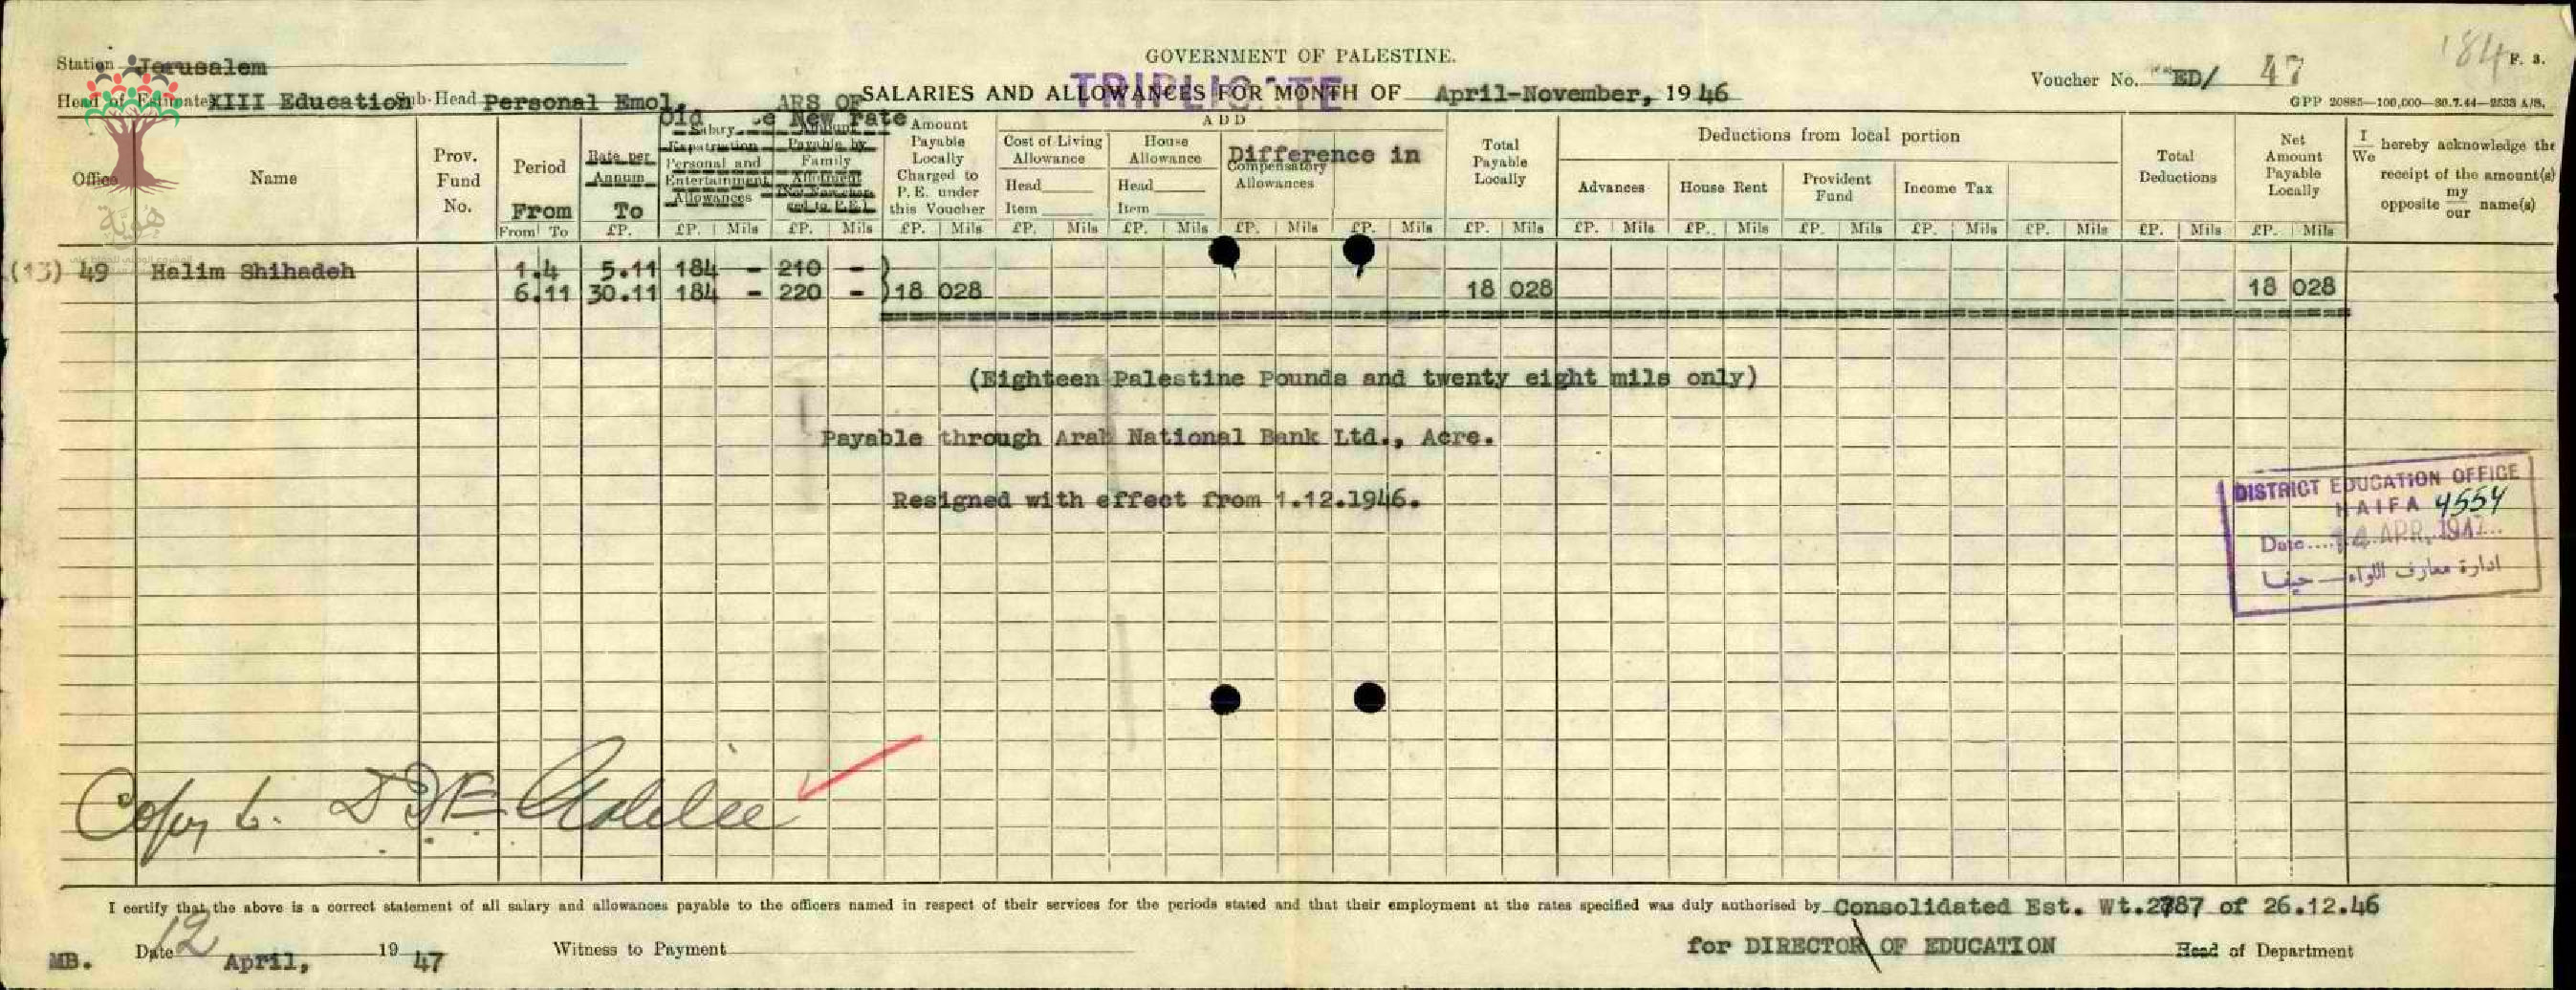 GOVERNMENT OF PALESTINE.
184 F. 3.
Station Jerusalem
TRIPLICATE
Voucher No. ED/ 47
Head of Estimate XIII Education Sub-Head Personal Emol. ARS OF SALARIES AND ALLOWANCES FOR MONTH OF April-November, 1946
GPP 20885—100,000—30.7.44—2533 A/S.
Office
Name
Prov. Fund No.
Period
From
From To
Rate per Annum
To
£P.
Old Rate
Salary Expatriation Personal and Entertainment Allowances
£P. Mils
New rate
Amount Payable by Family Allotment
£P. Mils
Amount Payable Locally Charged to P. E. under this Voucher
£P. Mils
ADD
Cost of Living Allowance
Head
Item
£P. Mils
House Allowance
Head
Item
£P. Mils
Difference in
Compensatory Allowances
£P. Mils £P. Mils
Total Payable Locally
£P. Mils
Deductions from local portion
Advances
£P. Mils
House Rent
£P. Mils
Provident Fund
£P. Mils
Income Tax
£P. Mils
£P. Mils
Total Deductions
£P. Mils
Net Amount Payable Locally
£P. Mils
I We hereby acknowledge the receipt of the amount(s) opposite my our name(s)
هَوِيَّة
(13) 49 Halim Shihadeh 1.4 5.11 184 - 210 - )
6.11 30.11 184 - 220 - ) 18 028 18 028 18 028
(Eighteen Palestine Pounds and twenty eight mils only)
Payable through Arab National Bank Ltd., Acre.
Resigned with effect from 1.12.1946.
DISTRICT EDUCATION OFFICE
HAIFA 4554
Date.... 14 APR. 1947
ادارة معارف اللواء — حيفا
Copy to. D D E Galilee
I certify that the above is a correct statement of all salary and allowances payable to the officers named in respect of their services for the periods stated and that their employment at the rates specified was duly authorised by Consolidated Est. Wt.2787 of 26.12.46
MB. Date 12 April, 19 47 Witness to Payment
for DIRECTOR OF EDUCATION Head of Department